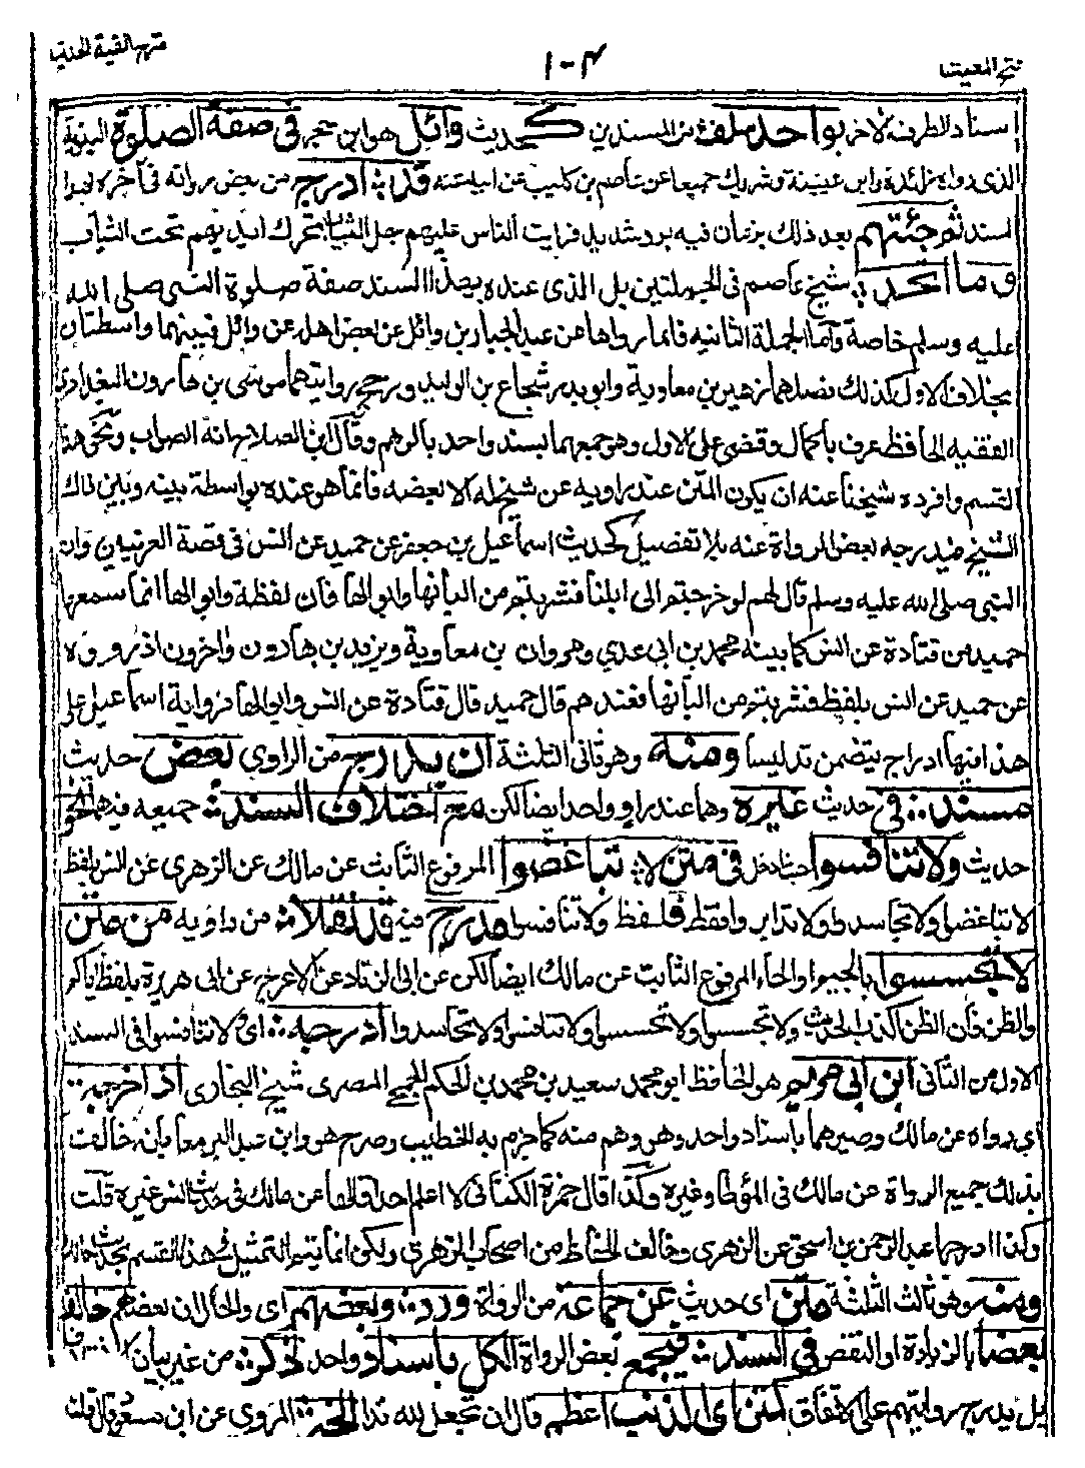 فتح المغيث ١٠٤ شرح الفية الحديث
اسناد الطرف الآخر بواحد سلف من السندين كحديث وائل هو ابن حجر في صفة الصلوة النبوية
الذي رواه زائدة وابن عيينة وشريك جميعا عن عاصم بن كليب عن ابيه عنه قد ادرج من بعض رواته في آخره بهذا
السند ثم جئتهم بعد ذلك بزمان فيه برد شديد فرأيت الناس عليهم جل الثياب تحرك ايديهم تحت الثياب
وما اتحد شيخ عاصم في الجملتين بل الذي عنده بهذا السند صفة صلوة النبي صلى الله
عليه وسلم خاصة وأما الجملة الثانية فانما رواها عن عبد الجبار بن وائل عن بعض اهله عن وائل فبينهما واسطتان
بخلاف الاول كذلك فصلهما زهير بن معاوية وابو بدر شجاع بن الوليد ورجح روايتهما موسى بن هارون البغدادي
الفقيه الحافظ عرف بالحمال وقضى على الاول وهو جمعهما بسند واحد بالوهم وقال ابن الصلاح انه الصواب ونحو هذا
القسم وافرده شيخنا عنه ان يكون المتن عند راويه عن شيخ له الا بعضه فانما هو عنده بواسطة بينه وبين ذلك
الشيخ فيدرجه بعض الرواة عنه بلا تفصيل كحديث اسماعيل بن جعفر عن حميد عن انس في قصة العرنيين وان
النبي صلى الله عليه وسلم قال لهم لو خرجتم الى ابلنا فشربتم من البانها وابوالها فان لفظة وابوالها انما سمعها
حميد من قتادة عن انس كما بينه محمد بن ابي عدي ومروان بن معاوية ويزيد بن هارون وآخرون اذ رووه
عن حميد عن انس بلفظ فشربتم من البانها فعندهم قال حميد قال قتادة عن انس وابوالها فرواية اسماعيل على
هذا فيها ادراج يتضمن تدليسا ومنه وهو ثاني الثلثة ان يدرج من الراوي بعض حديث
مسند في حديث غيره وهما عند راو واحد ايضا لكن مع اختلاف السند جميعه فيهما نحو
حديث ولا تنافسوا حيث ادخل في متن لا تباغضوا المرفوع الثابت عن مالك عن الزهري عن انس بلفظ
لا تباغضوا ولا تحاسدوا ولا تدابروا فقط فلفظ ولا تنافسوا مدرج فيه قد نقلا من راويه من متن
لا تجسسوا بالجيم او الحاء المرفوع الثابت عن مالك ايضا لكن عن ابي الزناد عن الاعرج عن ابي هريرة بلفظ اياكم
والظن فان الظن اكذب الحديث ولا تجسسوا ولا تحسسوا ولا تنافسوا ولا تحاسدوا ادرجه اي لا تنافسوا في السند
الاول من الثاني ابن ابي مريم هو الحافظ ابو محمد سعيد بن محمد بن الحكم الجمحي المصري شيخ البخاري اذ اخرجه
اي رواه عن مالك وصيرهما بأسناد واحد وهو وهم منه كما جزم به الخطيب وصرح هو وابن عبد البر معا بانه خالف
بذلك جميع الرواة عن مالك في المؤطا وغيره وكذا قال حمزة الكناني لا اعلم احدا قالها عن مالك في حديث انس غيره قلت
وكذا ادرجها عبد الرحمن بن اسحق عن الزهري وخالف الحفاظ من اصحاب الزهري ولكن انما يتم التمثيل في هذا القسم بحديث مالك
ومنه وهو ثالث الثلثة متن اي حديث عن جماعة من الرواة ورد وبعضهم اي والحال ان بعضهم خالف
بعضا بالزيادة او النقص في السند فيجمع بعض الرواة الكل باسناد واحد ذكر من غير بيان
بل يدرج روايتهم على الاتفاق كمتن اي الذنب اعظم قال ان تجعل لله ندا الخبر المروي عن ابن مسعود قال قلت